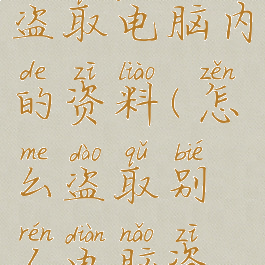 盗取电脑内
de zī liào zěn
的资料(怎
me dào qǔ bié
么盗取别
rén diàn nǎo zī
人电脑资